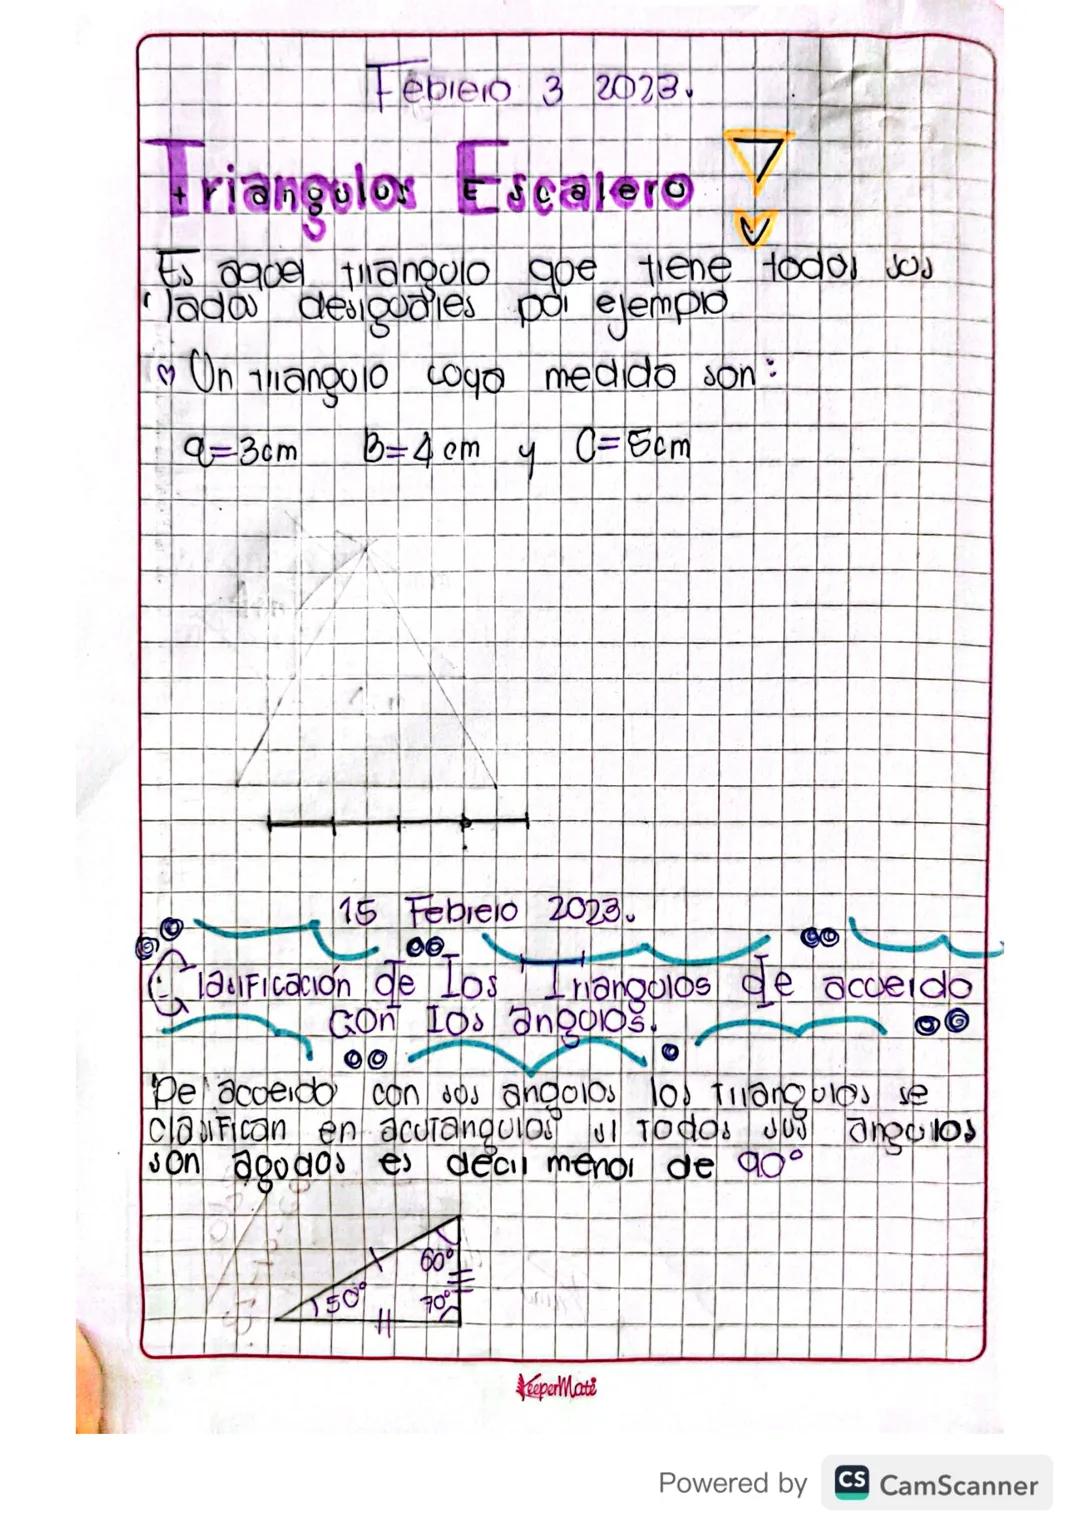 Febrero 3 2023.
Triangulos Escalero
Es aquel triangulo que tiene todos sus
lados desiguales por ejemplo
Un triangulo coya medida son:
a=3cm B=4cm y C=5cm
15 Febrero 2023.
Clasificación de los Triangulos de acuerdo
con los angulos.
De acuerdo con sus angulos los triangulos se
clasifican en acutangulos si todos sus angulos
son agudos es decir menor de 90°
60°
50° 70°
KeeperMate
Powered by CS CamScanner